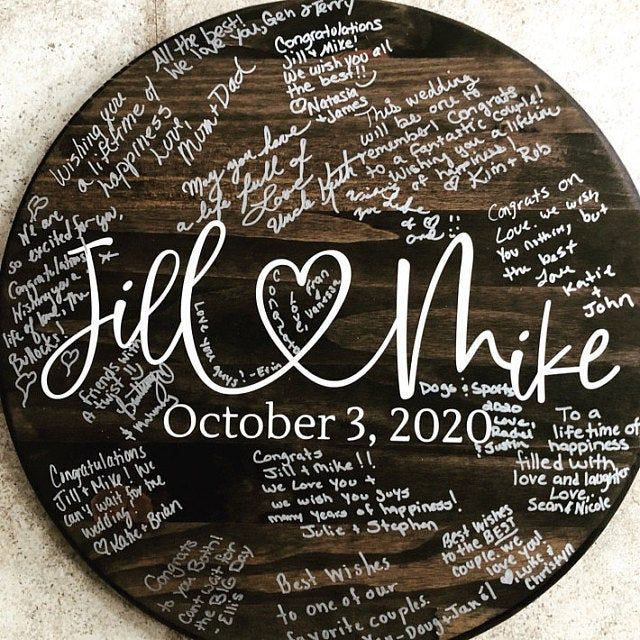 All the best!
We love you, Gen & Terry
Congratulations
Jill & Mike!
We wish you all
the best!!
Natasia
+ James
Wishing you
a lifetime of
happiness
Love,
Mum + Dad
May you have
a life full of
Love
Uncle Keith
This wedding
will be one to
remember! Congrats
to a fantastic couple!
Wishing you a lifetime
of happiness!
Kim + Rob
Congrats on
Love. We wish
You nothing, but
the best
Love
Katie
+
John
We are
so excited for you,
Congratulations
Wishing you a
life of love, The
Bullocks!
Jill Mike
Congrats
Love
Fran
Vanessa
Love you guys! - Erin
October 3, 2020
A friends with
twist!!
Dogs & Sports
2020
Love,
Rachel
+ Justin
To a
lifetime of
happiness
filled with
love and laughter
Love,
Sean & Nicole
Congratulations
Jill & Mike! We
can't wait for the
wedding!
Katie & Brian
Congrats
Jill & Mike!!
we love You +
we wish You guys
many Years of happiness!
Julie + Stephan
Best Wishes
to the BEST
couple. We
love you!
Luke +
Christyn
Congrats
to You Both!
Can't wait for
the BIG DAY
- Ellis
Best Wishes
to one of our
favorite couples.
- Doug + Jane!